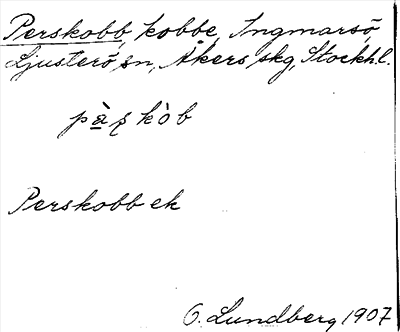 Perskobb, kobbe, Ingmarsö,
Ljusterö sn, Åkers skg, Stockhl.
pàʂkòb
Perskobb ek
O. Lundberg 1907